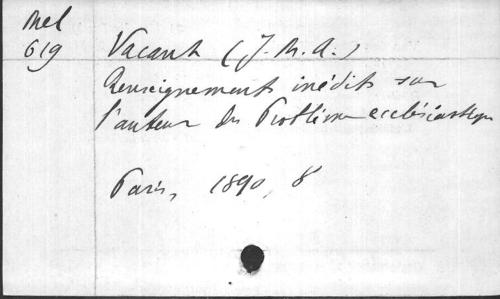 Mel
619 Vacant (J. M. A.)
Renseignements inédits sur
l'auteur du Problème ecclésiastique
Paris, 1890, 8°